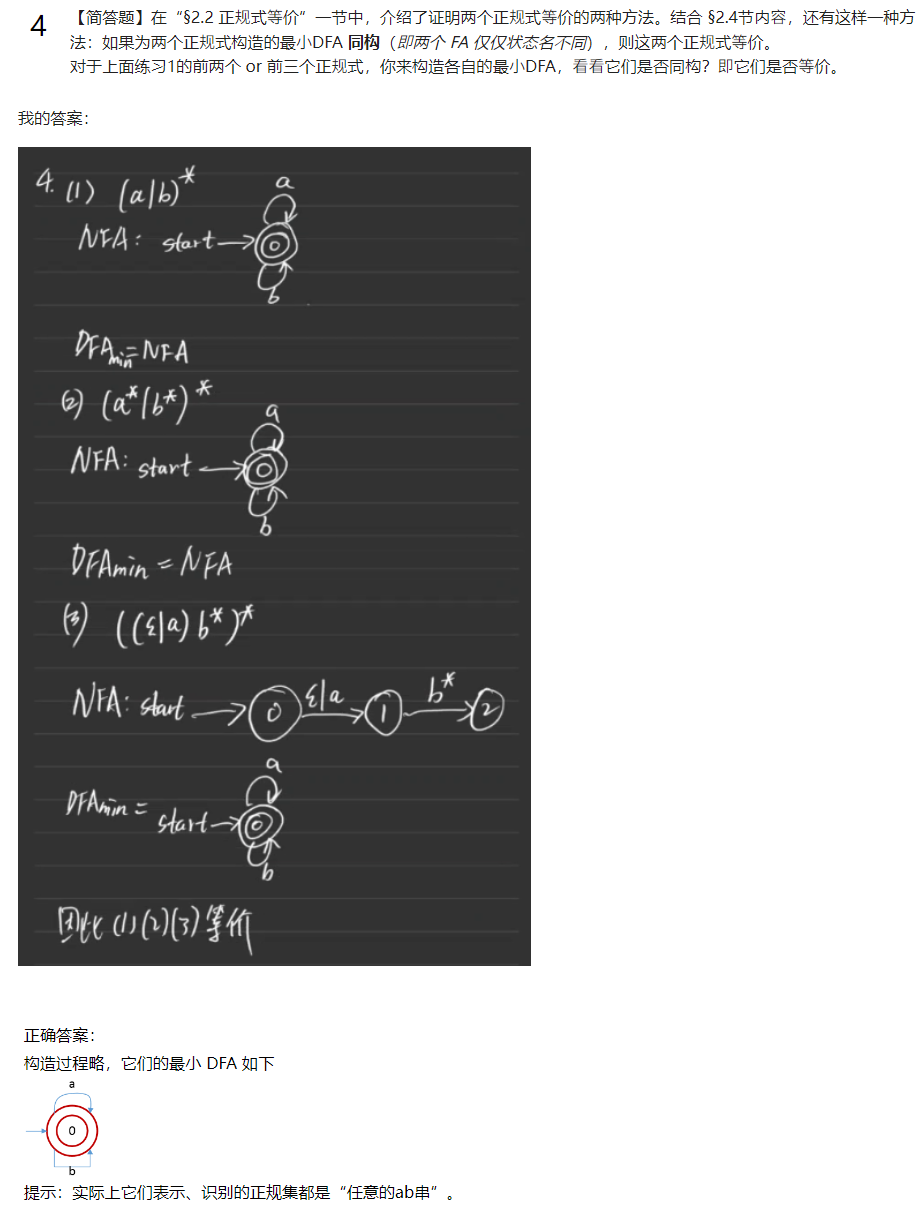 4 【简答题】在“§2.2 正规式等价”一节中，介绍了证明两个正规式等价的两种方法。结合 §2.4节内容，还有这样一种方
法：如果为两个正规式构造的最小DFA 同构（即两个 FA 仅仅状态名不同），则这两个正规式等价。
对于上面练习1的前两个 or 前三个正规式，你来构造各自的最小DFA，看看它们是否同构？即它们是否等价。
我的答案：
4. (1) (a|b)*
a
NFA: start 0
b
DFAmin=NFA
(2) (a*|b*)*
a
NFA: start 0
b
DFAmin = NFA
(3) ((ε|a) b*)*
NFA: start 0 ε|a 1 b* 2
a
DFAmin = start 0
b
因此 (1)(2)(3) 等价
正确答案：
构造过程略，它们的最小 DFA 如下
a
0
b
提示：实际上它们表示、识别的正规集都是“任意的ab串”。